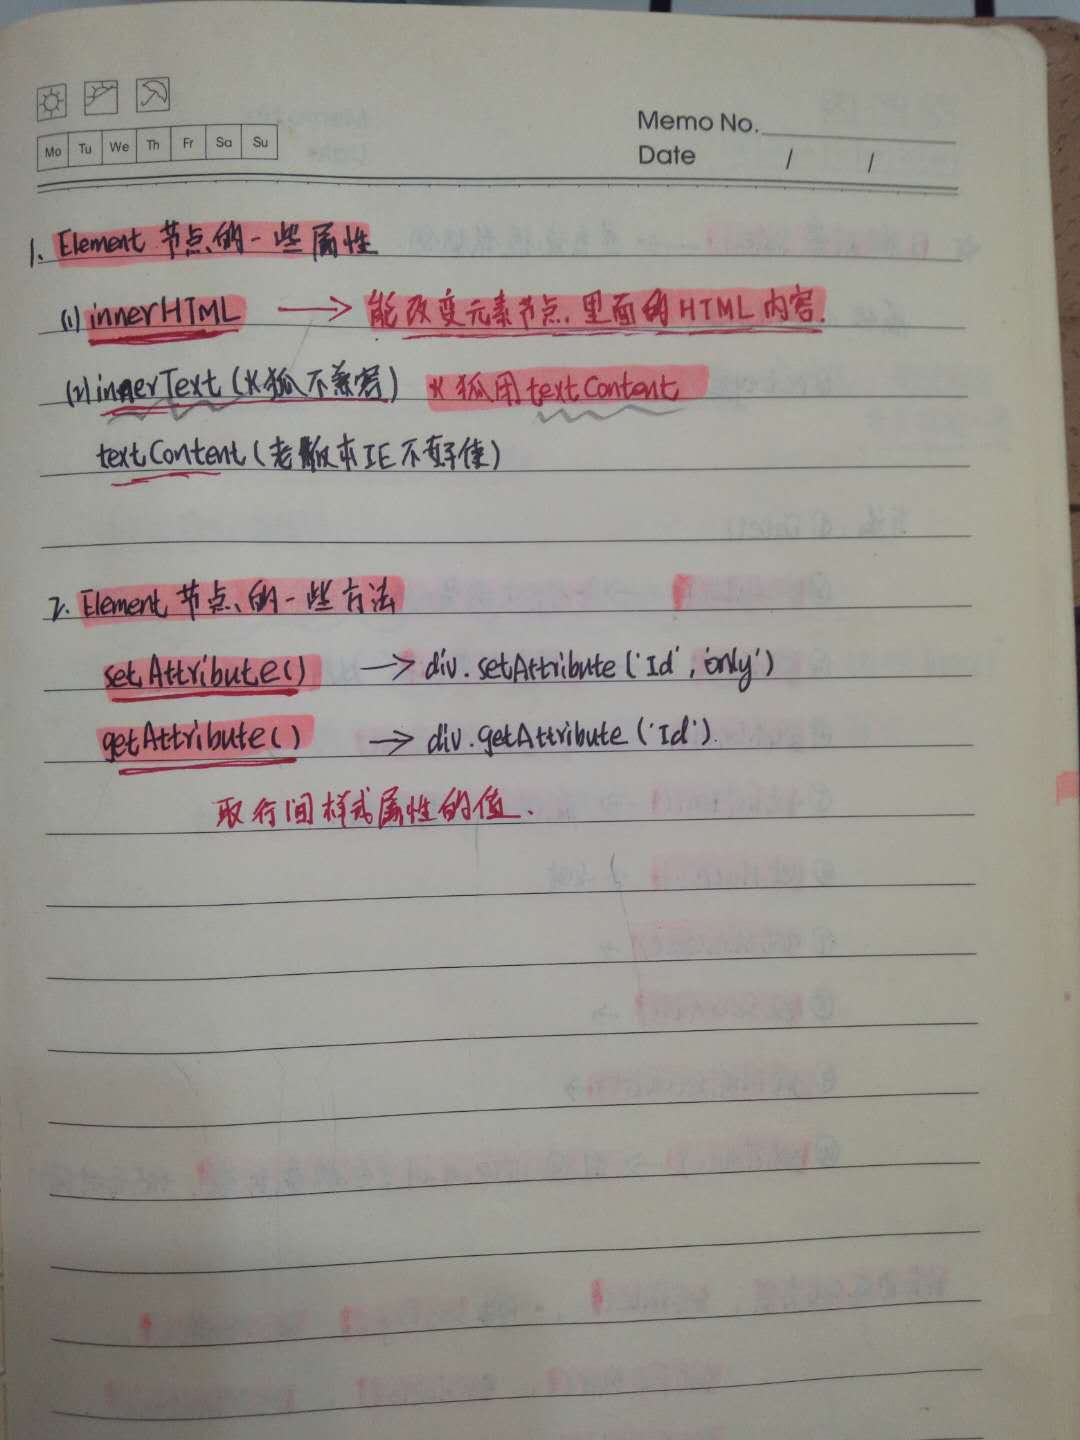 Mo Tu We Th Fr Sa Su
Memo No.
Date / /
1. Element 节点的一些属性
(1) innerHTML → 能改变元素节点里面的HTML内容.
(2) innerText (火狐不兼容) 火狐用textContent
textContent (老版本IE不好使)
2. Element 节点的一些方法
setAttribute() → div.setAttribute('Id','only')
getAttribute() → div.getAttribute('Id').
取行间样式属性的值.